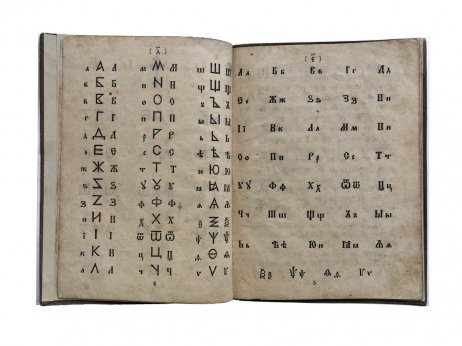 (д҃)
а А а м М м ш Ш ш
б Б б н Н н щ Щ щ
в В в о О о ъ Ъ ъ
г Г г п П п ы Ы ы
д Д д р Р р ь Ь ь
е Е е с С с ѣ Ѣ ѣ
ж Ж ж т Т т ю Ю ю
ѕ Ѕ ѕ у У у
з Z з ф Ф ф ѧ
и И и х Х х ѯ ѯ
і І і ѿ ѿ ѱ Ѱ ѱ
к К к ц Ц ц ѳ Ѳ ѳ
л Л л ч Ч ч ѵ V ѵ
4
(є҃)
Аа Бб Вв Гг Дд
Єе Жж Ѕѕ Зз Ии
Іі Кк Лл Мм Нн
Оо Пп Рр Сс Тт
Уу Фф Хх Ѿѿ Цц
Чч Шш Щщ Ъъ Ыы
Ьь Ѣѣ Юю Ꙗꙗ Ѧѧ
Ѯѯ Ѱѱ Ѳѳ Ѵѵ
5